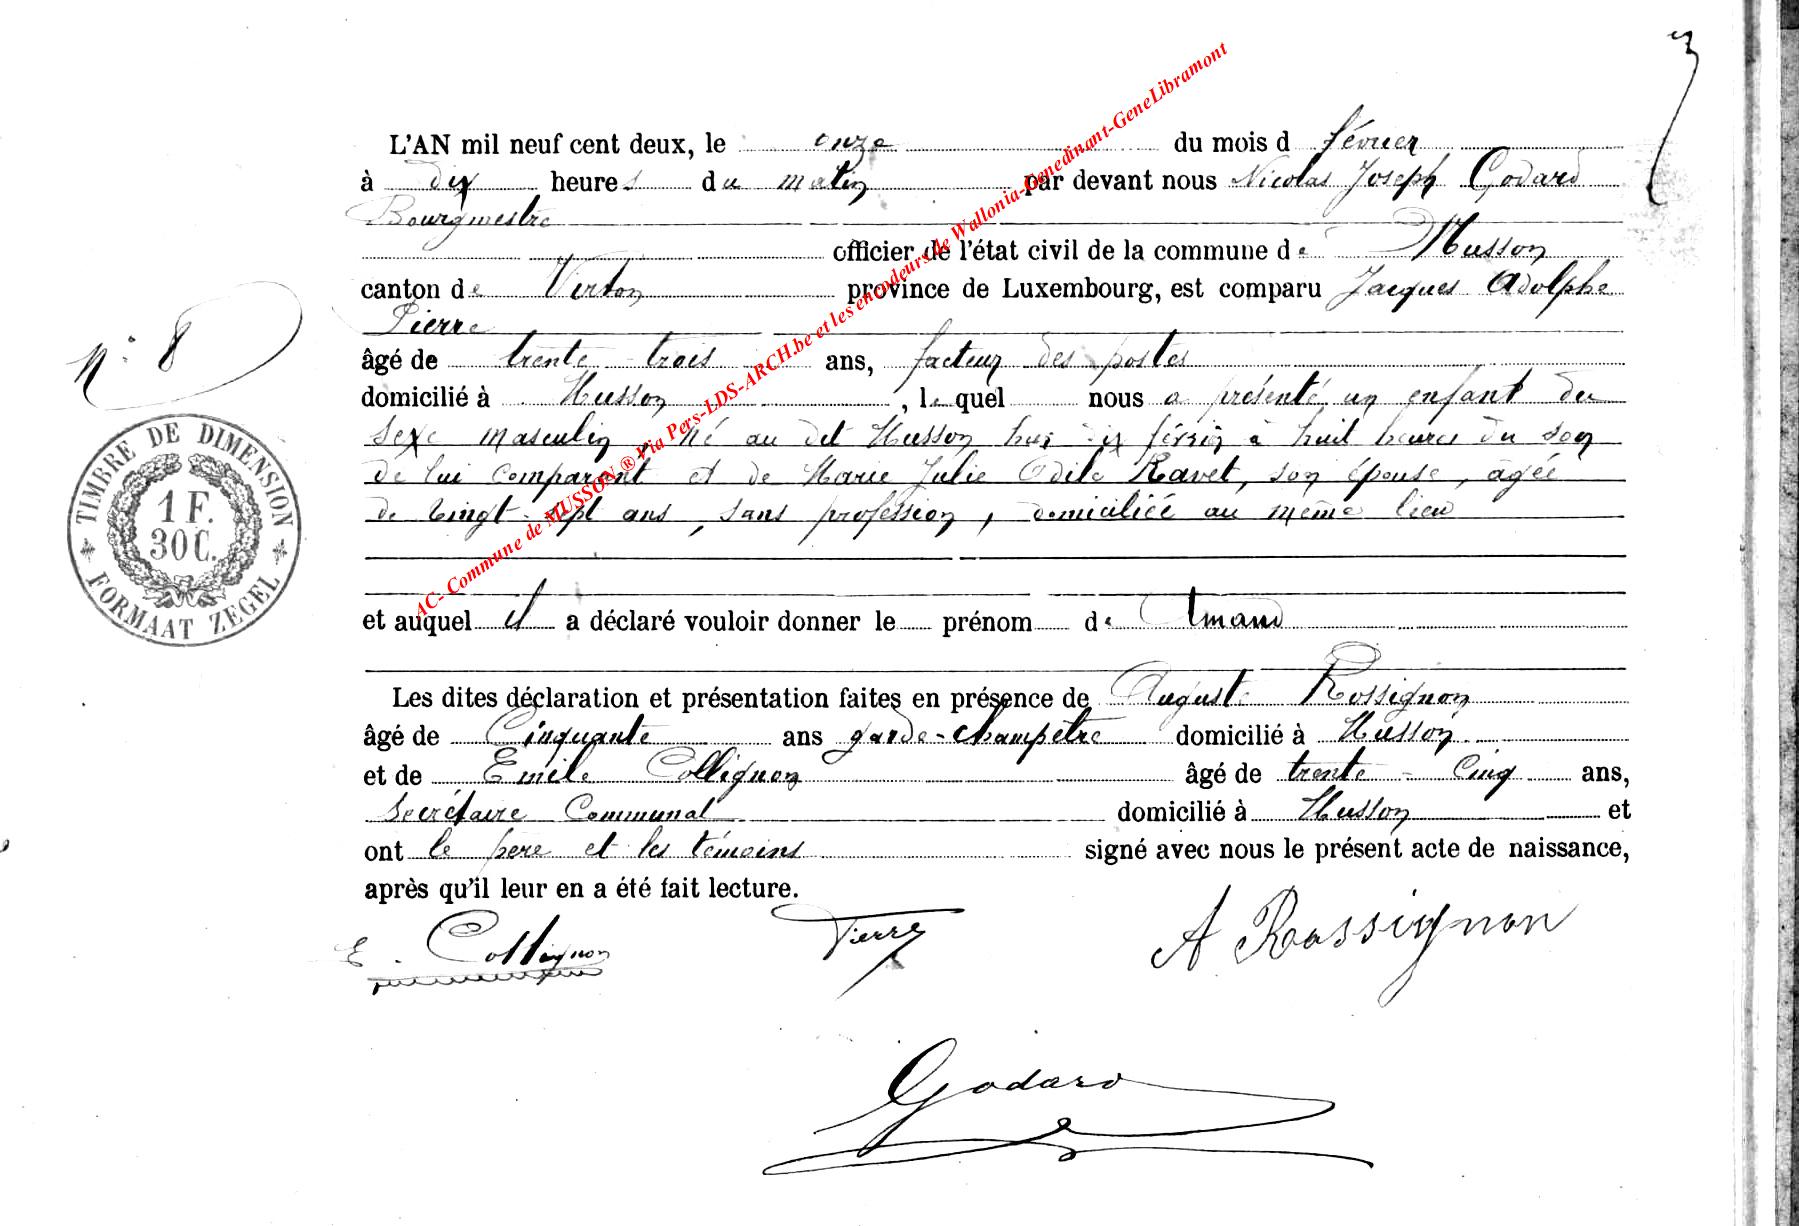 3
L'AN mil neuf cent deux, le onze du mois d février
à dix heures du matin par devant nous Nicolas Joseph Godard
Bourgmestre
officier de l'état civil de la commune de Musson
canton de Virton province de Luxembourg, est comparu Jacques Adolphe
Pierre
âgé de trente-trois ans, facteur des postes
domicilié à Musson, lequel nous a présenté un enfant du
sexe masculin, né au dit Musson hier dix février à huit heures du soir
de lui comparant et de Marie Julie Odile Ravet, son épouse, âgée
de vingt-sept ans, sans profession, domiciliée au même lieu
et auquel il a déclaré vouloir donner le prénom de Amand
Les dites déclaration et présentation faites en présence de Auguste Rossignon
âgé de Cinquante ans garde-champêtre domicilié à Musson
et de Emile Collignon âgé de trente-cinq ans,
Secrétaire Communal domicilié à Musson et
ont le père et les témoins signé avec nous le présent acte de naissance,
après qu'il leur en a été fait lecture.
E. Collignon Pierre A Rossignon
Godard
N° 8
TIMBRE DE DIMENSION
1 F.
30 C.
FORMAAT ZEGEL
AC- Commune de MUSSON ® Via Pers-LDS-ARCH.be et les encodeurs de Wallonia-Genedinant-GeneLibramont